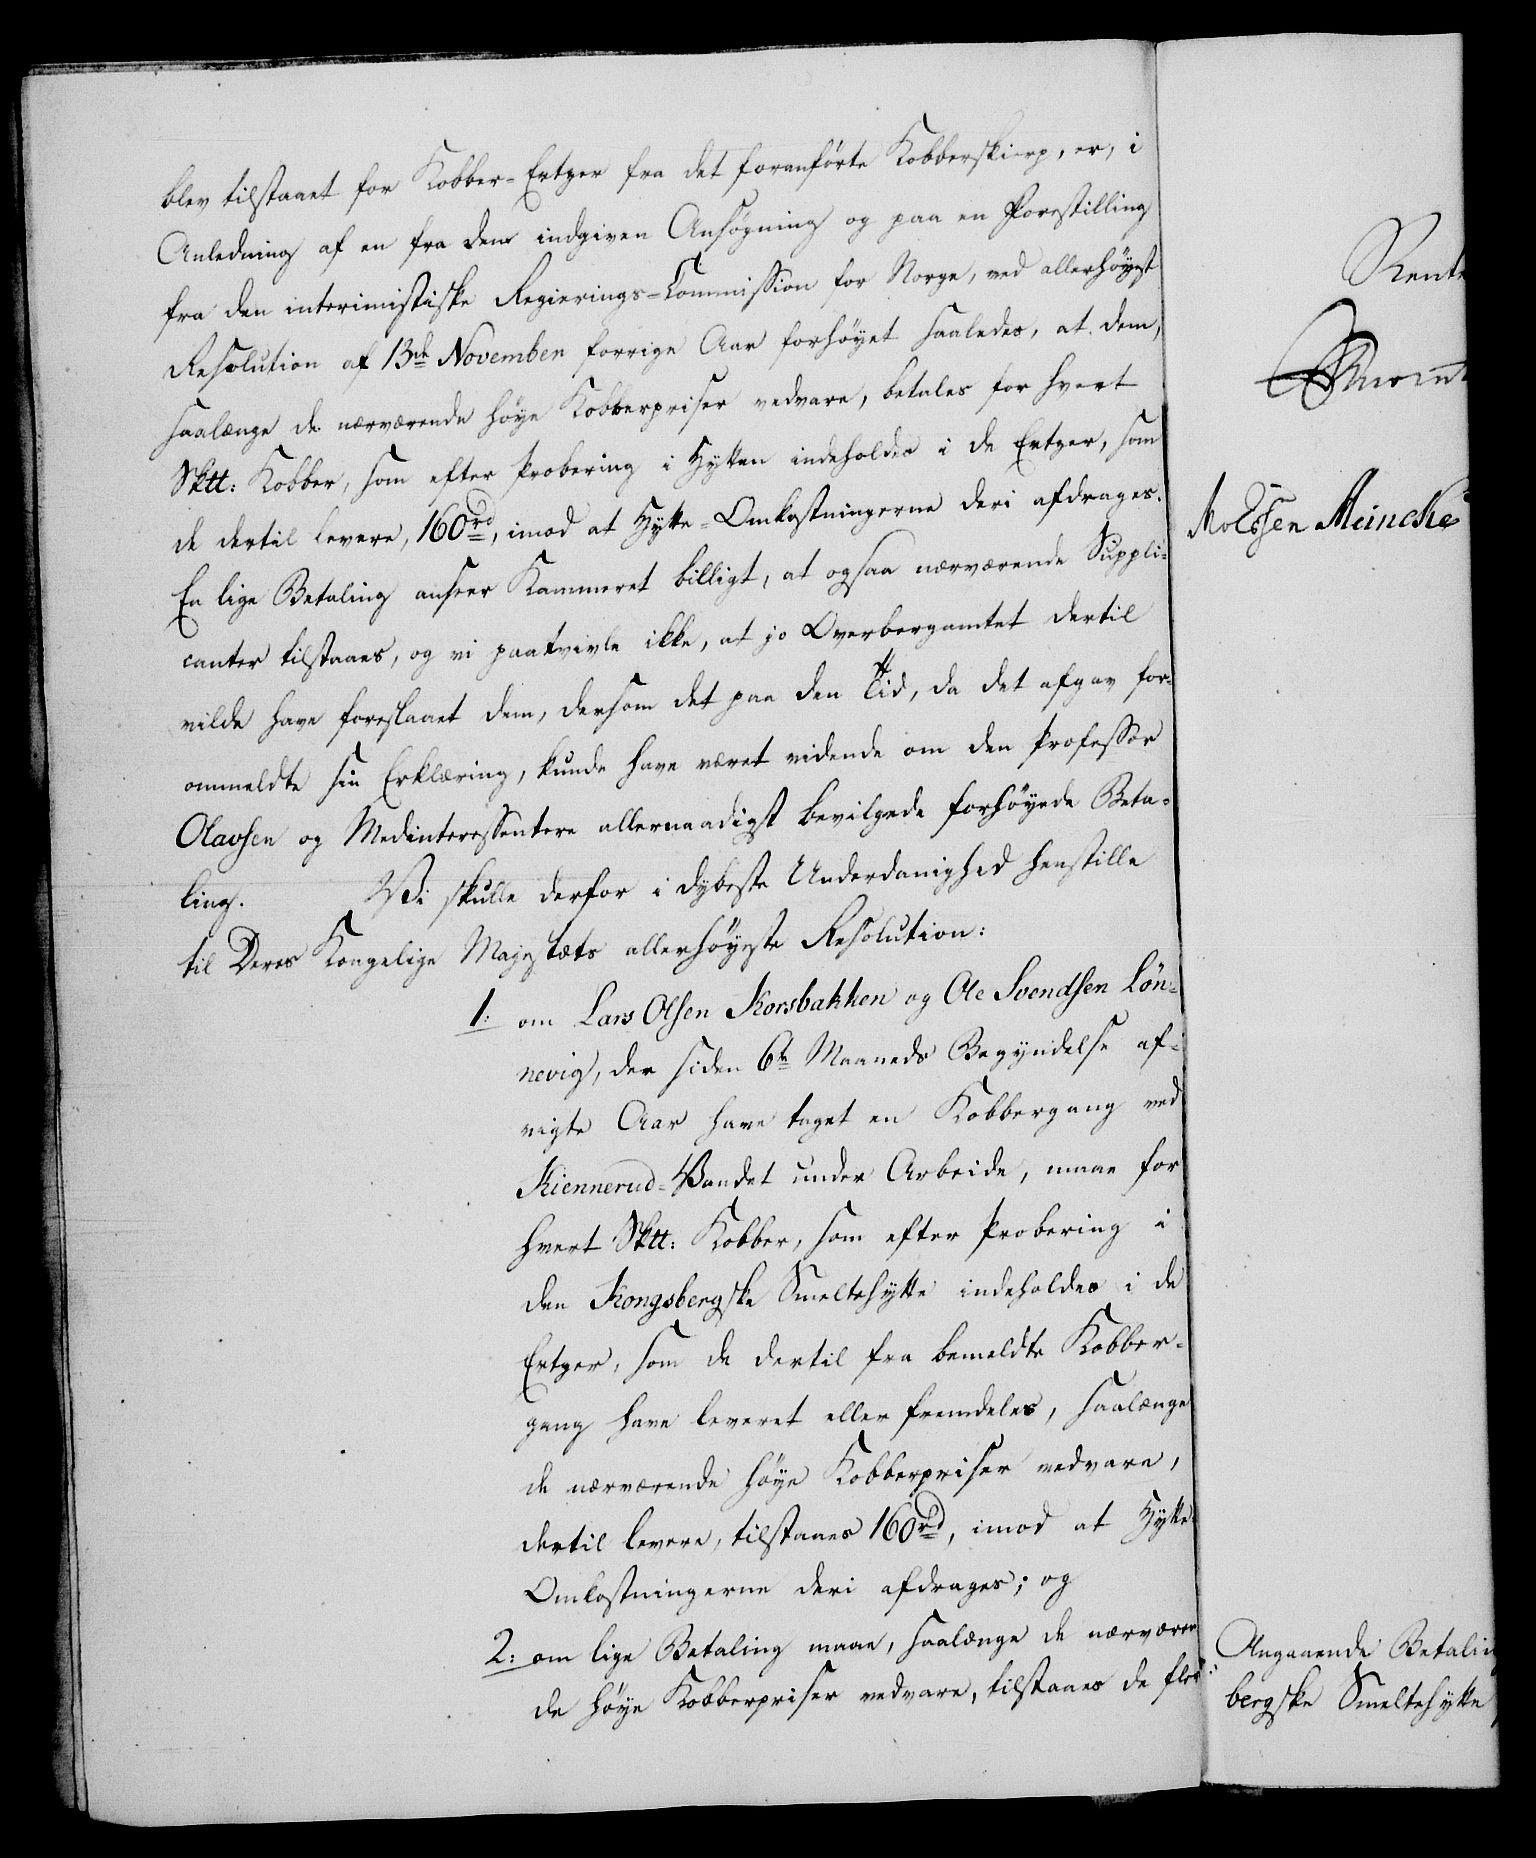 blev tilstaaet for Kobber-Ertzer fra det foranförte Kobberskierp, er, i
Anledning af en fra dem indgiven Ansøgning og paa en Forestilling
fra den interimistiske Regierings-Commission for Norge, ved allerhöyest
Resolution af 13de November forrige Aar forhöyet saaledes, at dem,
saalænge de nærværende höye Kobberpriser vedvare, betales for hvert
Sktt: Kobber, som efter Probering i Hytten indeholdes i de Ertzer, som
de dertil levere, 160rd, imod at Hytte-Omkostningerne deri afdrages.
En lige Betaling anseer Kammeret billigt, at ogsaa nærværende Suppli-
canter tilstaaes, og vi paatvivle ikke, at jo Overbergamtet dertil
vilde have foreslaaet dem, dersom det paa den Tid, da det afgav for-
ommeldte sin Erklæring, kunde have været vidende om den Professor
Olavsen og Medinteressentere allernaadigst bevilgede forhöyede Beta-
ling. Vi skulle derfor i dybeste Underdanighed henstille
til Deres Kongelige Majestæts allerhöyeste Resolution:
1: om Lars Olsen Korsbakken og Ole Svendsen Lön-
nevig, der siden 6te Maaneds Begyndelse af-
vigte Aar have taget en Kobbergang ved
Kiennerud-Vandet under Arbeide, maae for
hvert Sktt: Kobber, som efter Probering i
den Kongsbergske Smeltehytte indeholdes i de
Ertzer, som de dertil fra bemeldte Kobber-
gang have leveret eller fremdeles, saalænge
de nærværende höye Kobberpriser vedvare,
dertil levere, tilstaaes 160rd, imod at Hytte-
Omkostningerne deri afdrages; og
2: om lige Betaling maae, saalænge de nærværen-
de höye Kobberpriser vedvare, tilstaaes de fle-
Rente
Meincke
Angaaende Betalin
bergske Smeltehytte